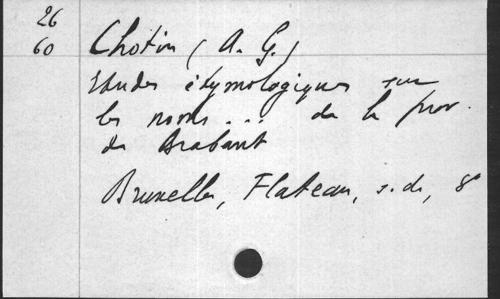 26
60 Chotin (A. G.)
Etudes étymologiques sur
les noms ... de la prov.
de Brabant
Bruxelles, Flateau, s.d., 8°